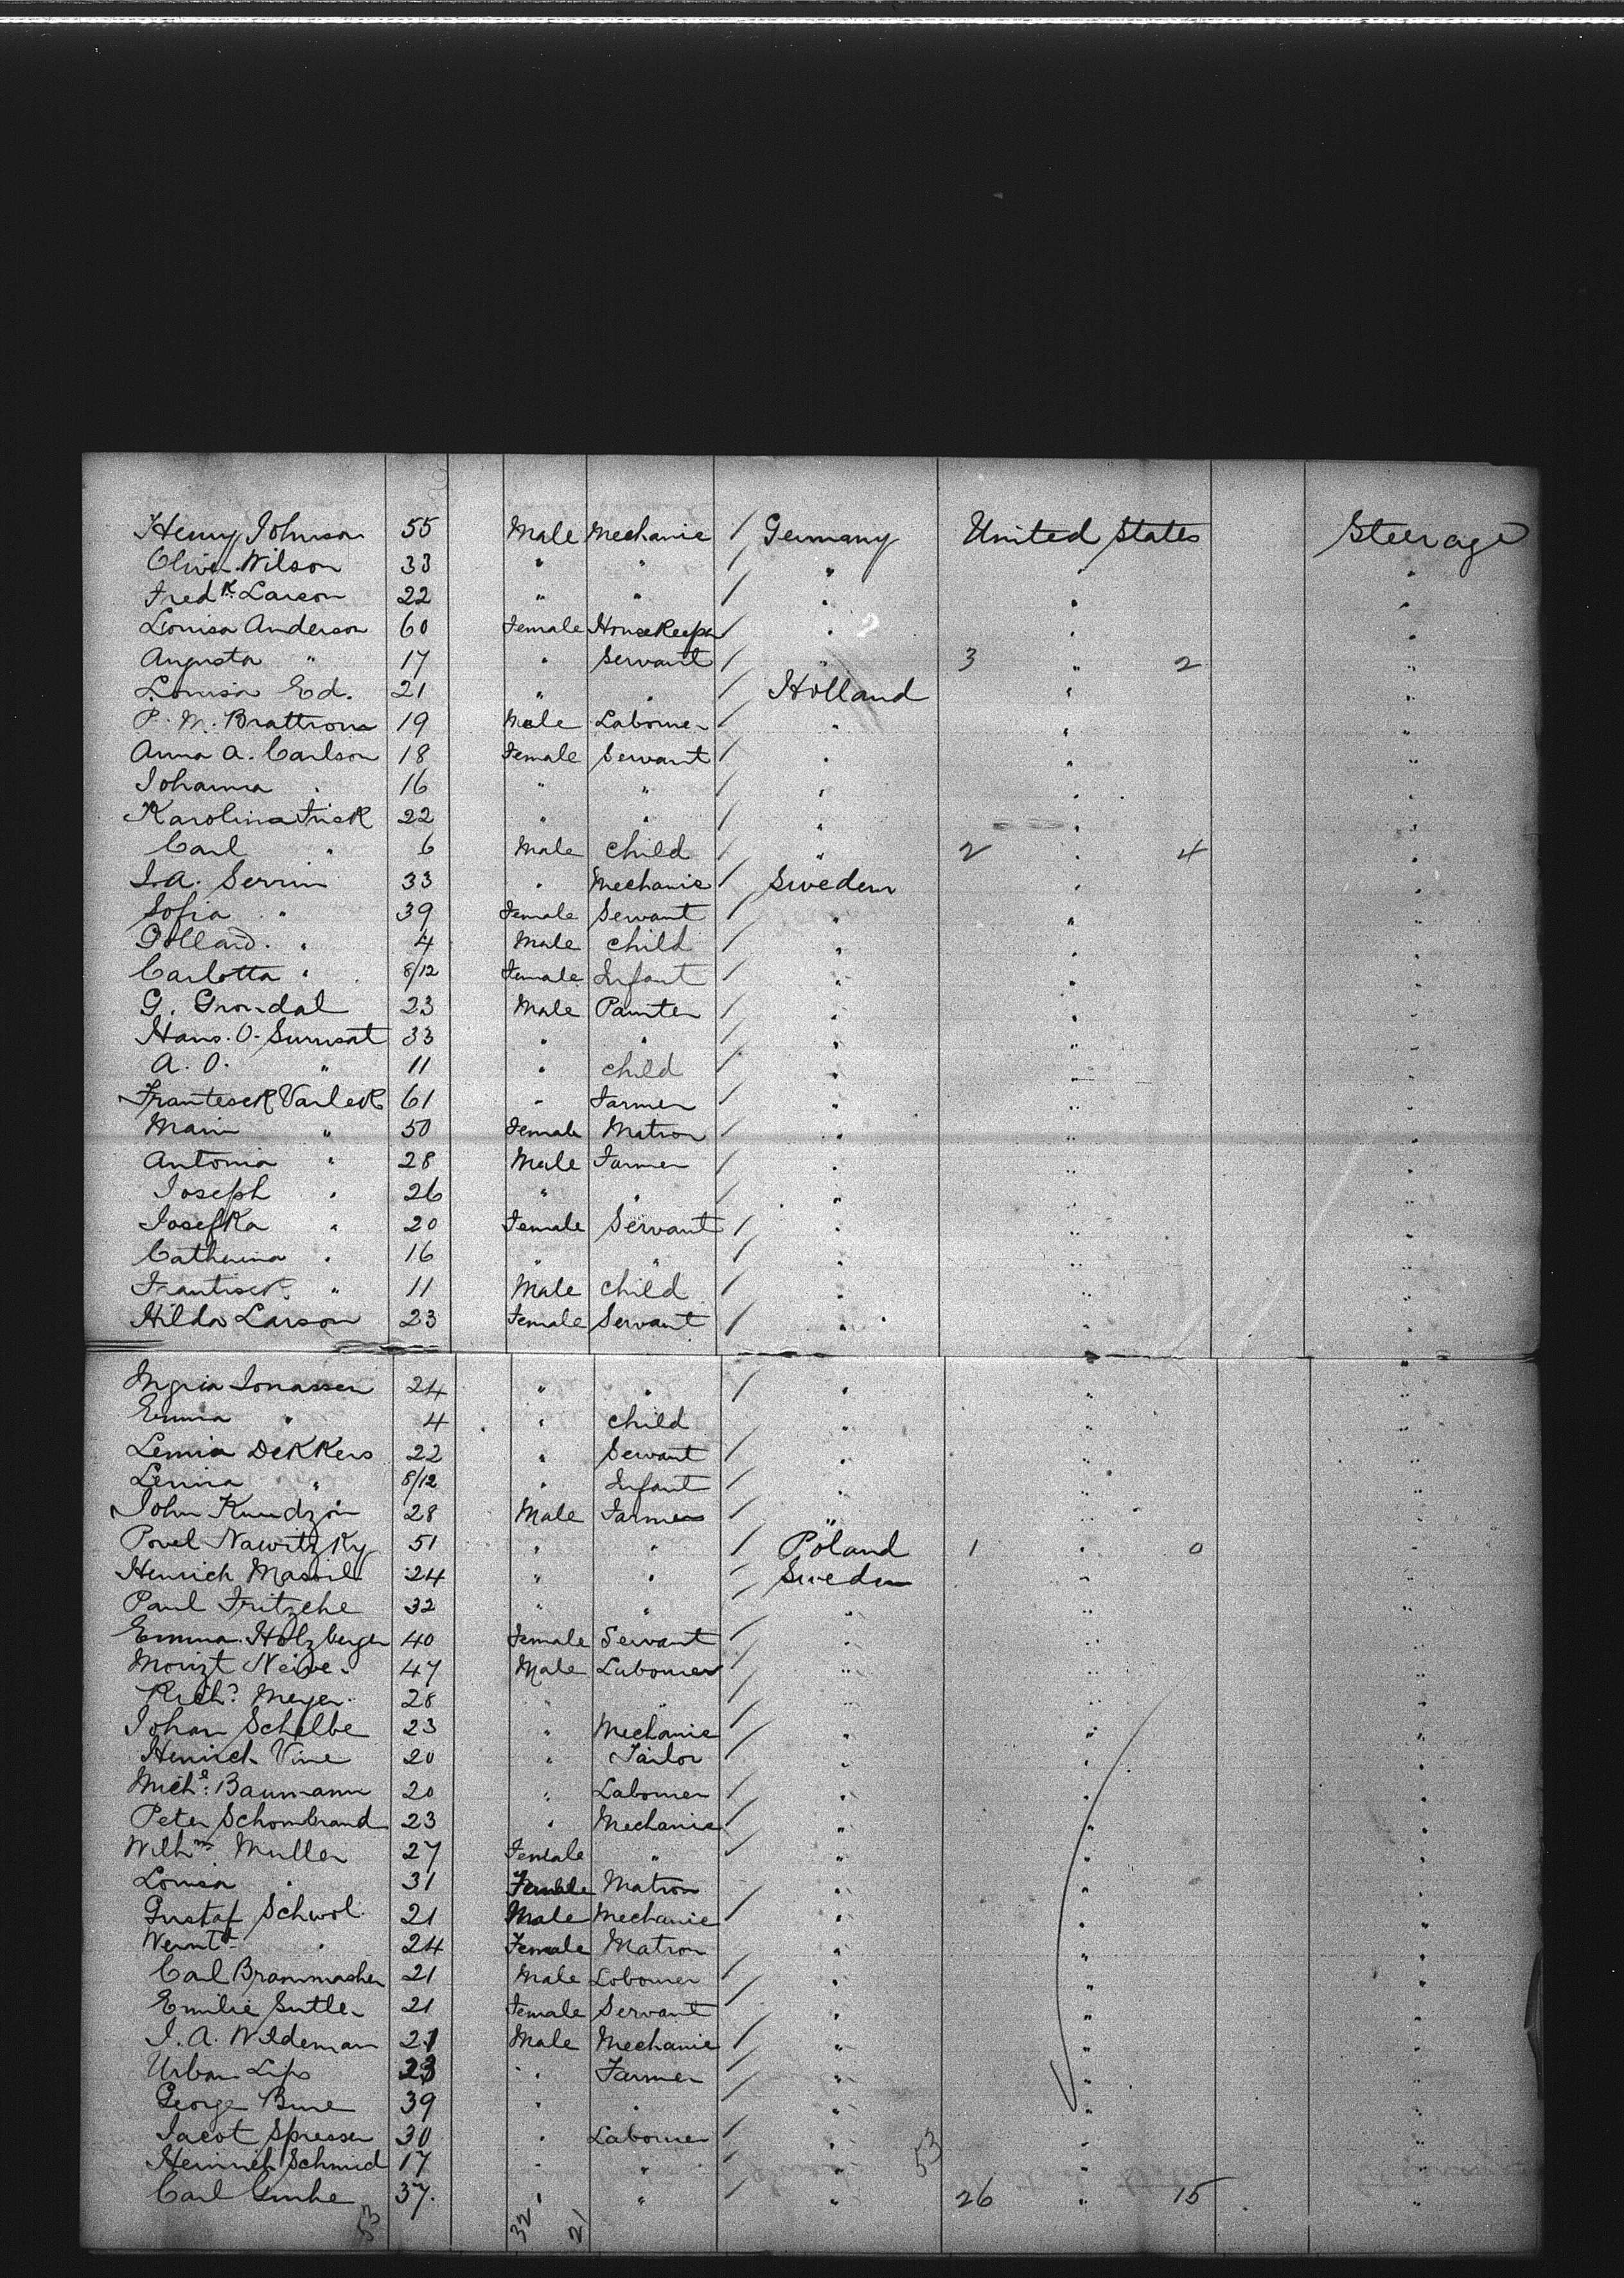 Henry Johnson 55 Male Mechanic / Germany United States Steerage
Oliver Wilson 33 " " / " " "
Fredk. Larson 22 " " / " " "
Louisa Anderson 60 Female HouseKeeper / " " "
Augusta " 17 " Servant / " 3 " 2 "
Louisa Ed. 21 " " / Holland " "
P. M. Brattrom 19 Male Labourer / " " "
Anna A. Carlson 18 Female Servant / " " "
Johanna " 16 " " / " " "
Karolina Frick 22 " " / " " "
Carl " 6 Male Child / " 2 " 4 "
J. A. Serrin 33 " Mechanic / Sweden " "
Sofia " 39 Female Servant / " " "
" 4 Male Child / " " "
Carlotta " 8/12 Female Infant / " " "
G. Grondal 23 Male Painter / " " "
Hans. O. 33 " " / " " "
A. O. " 11 " Child / " " "
Frantisek Varlek 61 " Farmer / " " "
Mari " 50 Female Matron / " " "
Antonia " 28 Male Farmer / " " "
Joseph " 26 " " / " " "
Josefka " 20 Female Servant / " " "
Catherina " 16 " " / " " "
Frantisek " 11 Male Child / " " "
Hilda Larson 23 Female Servant / " " "
Jonassen 24 " " / " " "
Emma " 4 " Child " " "
DeKKers 22 " Servant / " " "
" 8/12 " Infant / " " "
John 28 Male Farmer / " " "
Povel Nawitzky 51 " " / Poland 1 " 0 "
Henrich Massil 24 " " / Sweden " "
Paul Fritzche 32 " " / " " "
Emma Holzberger 40 Female Servant / " " "
Morizt 47 Male Labourer / " " "
Richd. Meyer 28 " " / " " "
Johan Schelbe 23 " Mechanic / " " "
Henrich Vine 20 " Tailor / " " "
Michl. Baumann 20 " Labourer / " " "
Peter Schombrand 23 " Mechanic / " " "
Wilhm. Muller 27 Female " / " " "
Louisa " 31 Female Matron " " "
Gustaf Schwol 21 Male Mechanic / " " "
" 24 Female Matron " " "
Carl Brammasher 21 Male Labourer / " " "
Emilie Sutler 21 Female Servant / " " "
J. A. Wildeman 21 Male Mechanic / " " "
Urban Lips 23 " Farmer / " " "
George 39 " " / " " "
Jacot Spresser 30 " Labourer / " " "
Heinrich Schmid 17 " " / " 53 " "
Carl 37. " " / " 26 " 15 "
53 32 21